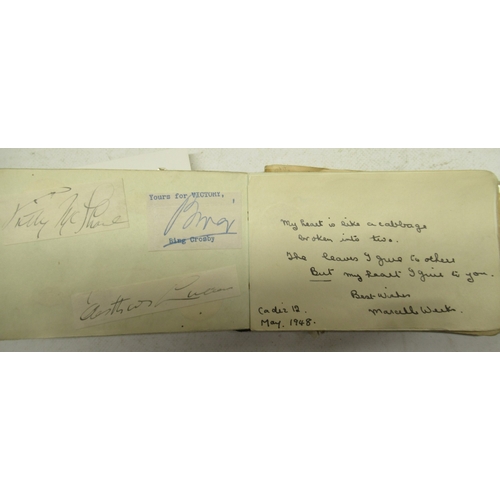 Yours for VICTORY,
Bing
Bing Crosby
My heart is like a cabbage
broken into two.
The leaves I give to others
But my heart I give to you.
Best Wishes
Cadiz 12
May, 1948.